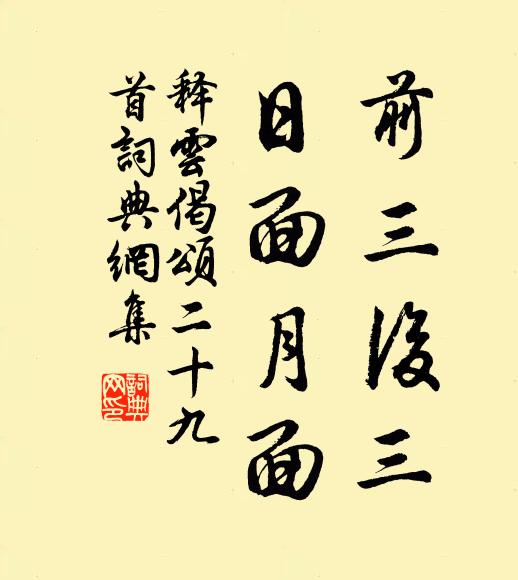 前三後三
日面月面
釋雲偈頌二十九
首詞典網集
詞典
网印